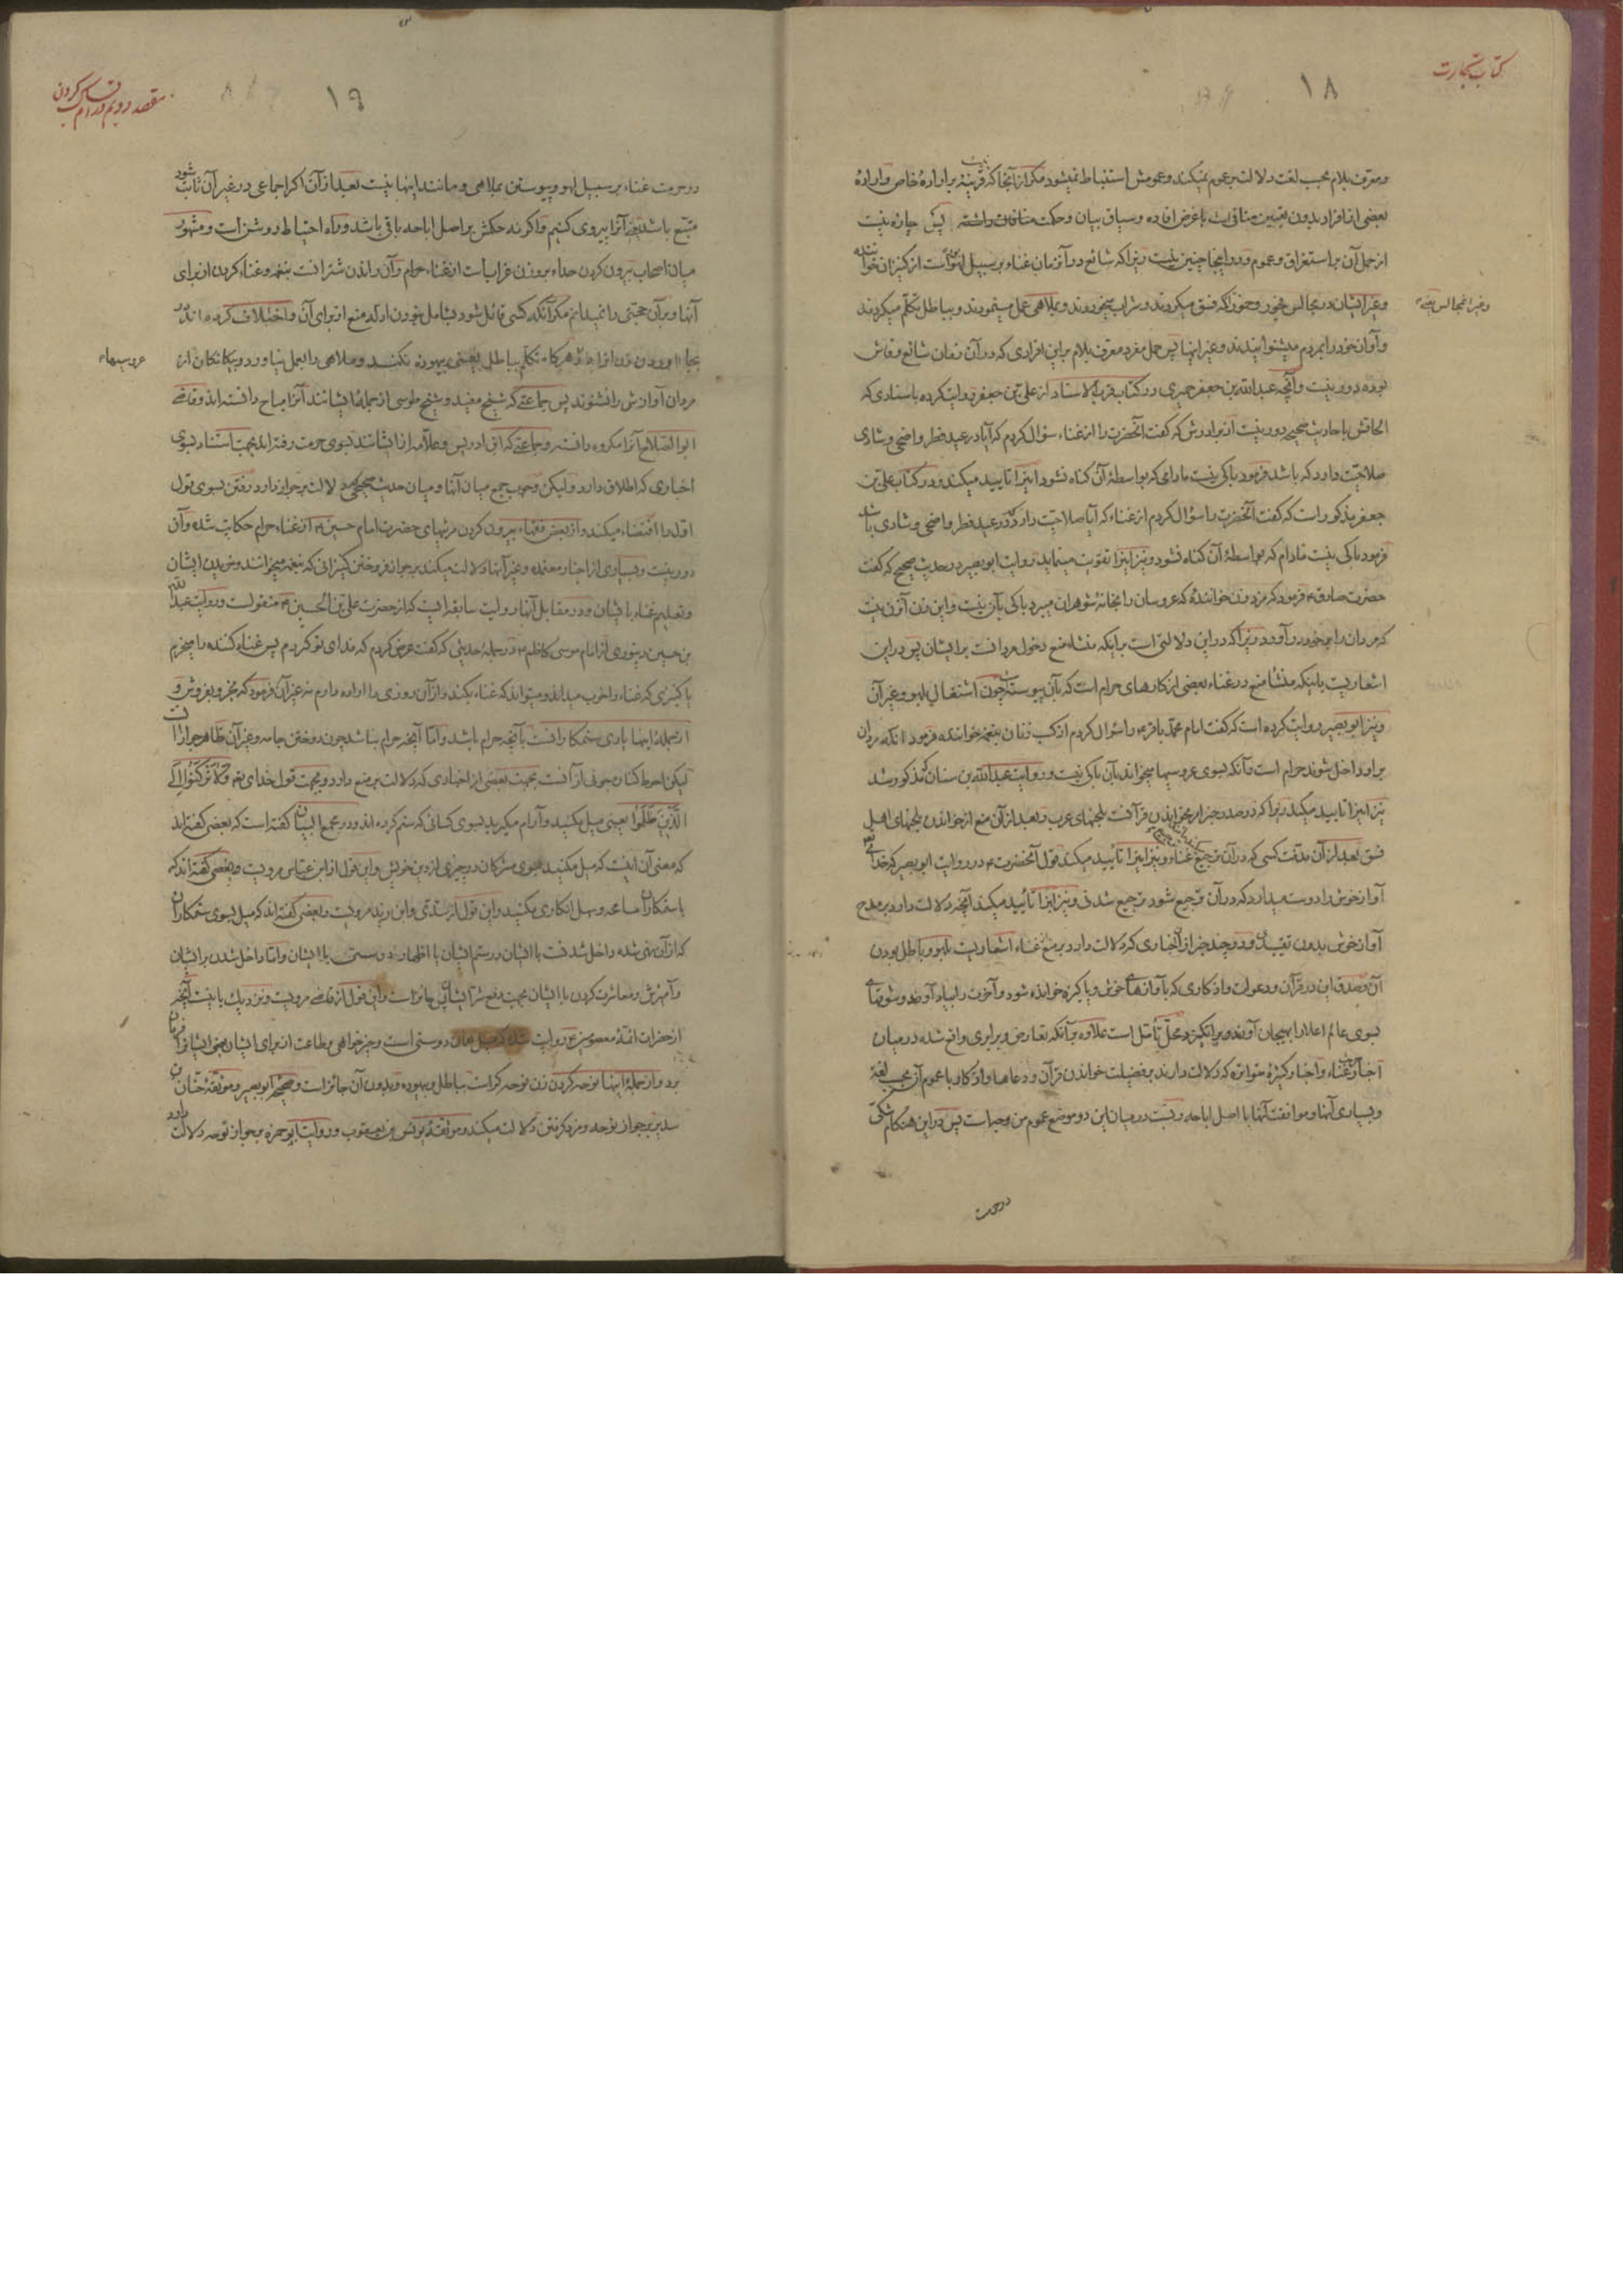 کتاب تجارت
۱۸
ومعرف بلام بحسب لغت دلالت بر عموم نمیکند وعمومش استنباط نمیشود مکر از آنجا که قرینهٔ بر ارادهٔ خاص وارادهٔ
بعضی از افراد بدون تعیین منافی است با غرض افاده وسیاق بیان وحکمت منافات داشته پس چاره نیست
از حمل آن بر استغراق وعموم ودر اینجا چنین نیست زیرا که شائع در آنزمان غناء بر سبیل لهو است از کنیزان خواننده
وغیر ایشان در مجالس فجور وخمور که فسق میکردند وشراب میخوردند وبملاهی عمل مینمودند وبباطل تکلّم میکردند
وآواز خود را بمردم میشنوانیدند وغیر اینها پس حمل مفرد معرف بلام بر این افرادی که در آن زمان شائع وفاش
بوده دور نیست وآنچه عبدالله بن جعفر حمیری در کتاب قرب الاسناد از علی بن جعفر روایت کرده باسنادی که
الحاقش باحادیث صحیحه دور نیست از برادرش که کفت آنحضرت را از غناء سؤال کردم که آیا در عید فطر واضحی وشادی
صلاحیّت دارد که باشد فرمود باکی نیست مادامی که بواسطهٔ آن کناه نشود اینرا تایید میکند ودر کتاب علی بن
جعفر مذکور است که کفت آنحضرت را سؤال کردم از غناء که آیا صلاحیّت دارد که در عید فطر واضحی وشادی باشد
فرمود باکی نیست مادام که بواسطهٔ آن کناه نشود ونیز اینرا تقویت مینماید روایت ابوبصیر در حدیث صحیح که کفت
حضرت صادق ع فرمود که مزد زن خوانندهٔ که عروسان را بخانهٔ شوهران میبرد باکی بآن نیست واین زن آنزن نیست
که مردان را بر خود در آورد زیرا که در این دلالتی است بر اینکه منشاء منع دخول مردانست بر ایشان پس در این
اشعاریست باینکه منشأ منع در غناء بعضی از کارهای حرام است که بآن پیوسته چون اشتغال بلهو وغیر آن
ونیز ابوبصیر روایت کرده است که کفت امام محمّد باقر ع را سؤال کردم از کسب زنان بنغمه خواننده فرمود آنکه مردان
بر او داخل شوند حرام است وآنکه بسوی عروسیها میخواند بآن باکی نیست وروایت عبدالله بن سنان که مذکور شد
نیز اینرا تایید میکند زیرا که در صدر خبر امر بخواندن قرآنست بلحنهای عرب وبعد از آن منع از خواندن بلحنهای اهل
فسق بعد از آن مذمّت کسی که در آن ترجیع غناء ونیز اینرا تأیید میکند قول آنحضرت ع در روایت ابوبصیر که خدا
آواز خوش را دوست میدارد که در آن ترجیع شود ترجیع شدنی ونیز اینرا تأیید میکند آنچه دلالت دارد بر مدح
آواز خوش بدون تقیید ودر چند خبر از اخباری که دلالت دارد بر منع غناء اشعاریست بلهو وباطل بودن
آن وصدق این در قرآن ودعوات واذکاری که بآوازهای خوش وپاکیزه خوانده شود وآخرت را بیاد آورد وشوقها
بسوی عالم اعلا را بهیجان آورد وبرانکیزد محلّ تأمّل است علاوه بر آنکه تعارض وبرابری واقع شده در میان
اخبار غناء واخبار کثیرهٔ متواتره که دلالت دارند بر فضیلت خواندن قرآن ودعاها واذکار با عموم آن بحسب لغة
وبسیاری آنها وموافقت آنها با اصل اباحه ونسبت در میان این دو موضع عموم من وجه است پس در این هنکام شکّی
در حرمت
۱۹
مقصد دویم در اداب کسب کردن
در حرمت غناء بر سبیل لهو وپیوستن بملاهی ومانند اینها نیست بعد از آن اکر اجماعی در غیر آن ثابت شود
متّبع باشد یعنی آنرا پیروی کنیم واکر نه حکمش بر اصل اباحه باقی باشد وراه احتیاط روشن است ومشهور
میان اصحاب بیرون کردن حداء بر وزن غراب است از غناء حرام وآن راندن شتر است بنغمه وغناء کردن از برای
آنها وبر آن حجّتی را نمیدانم مکر آنکه کسی قائل شود بشامل نبودن ادلّه منع از برای آن واختلاف کرده اند در
عروسیهاء
تکلّم بباطل یعنی بیهوده نکند وملاهی را بعمل نیاورد وبیکانکان از
مردان آوازش را نشنوند پس جماعتی که شیخ مفید وشیخ طوسی از جملهٔ ایشانند آنرا مباح دانسته اند وقاضی
ابوالصّلاح آنرا مکروه دانسته وجماعتی که ابن ادریس وعلّامه از ایشانند بسوی حرمت رفته اند بجهت استناد بسوی
اخباری که اطلاق دارد ولیکن وجوب جمع میان آنها ومیان حدیث صحیحی که دلالت بر جواز دارد رفتن بسوی قول
اوّل را اقتضاء میکند واز بعض فقهاء بیرون کردن مرثیهای حضرت امام حسین ع از غناء حرام حکایت شده وآن
دور نیست وبسیاری از اخبار معتمده وغیر آنها دلالت میکند بر جواز فروختن کنیزانی که بنغمه میخوانند وخریدن ایشان
وتعلیم غناء بایشان ودر مقابل آنها روایت سابقه ایست که از حضرت علی بن الحسین ع منقولست وروایت عبدالله
بن حسین دینوری از امام موسی کاظم ع در جملهٔ حدیثی که کفت عرض کردم که فدای تو کردم پس غناء کننده را میخرم
یا کنیزی که غناء را خوب میداند ومیتواند که غناء بکند واز آن روزی را اراده دارم نه غیر آن فرمود که بخر وبفروش و
از جملهٔ اینها یاری ستمکارانست بآنچه حرام باشد وامّا آنچه حرام نباشد چون دوختن جامه وغیر آن ظاهر جواز است
لیکن احوط کنار جوئی از آنست بجهت بعضی از اخباری که دلالت بر منع دارد وبجهت قول خدای تع وَلَا تَرْکَنُوا إِلَی
الَّذِینَ ظَلَمُوا یعنی میل مکنید وآرام میکیرید بسوی کسانی که ستم کرده اند ودر مجمع البیان کفته است که بعضی کفته اند
که معنی آن اینست که میل مکنید بسوی مشرکان در چیزی از دین خویش واین قول از ابن عبّاس مرویست وبعضی کفته اند که
با ستمکاران مسامحه وسهل انکاری مکنید واین قول از سدّی وابن زید مرویست وبعضی کفته اند که میل بسوی ستمکاران
که از آن نهی شده داخل شدنست با ایشان در ستم ایشان یا اظهار دوستی با ایشان وامّا داخل شدن بر ایشان
وآمیزش ومعاشرت کردن با ایشان بجهت دفع شرّ ایشان پس جائز است واین قول از قاضی مرویست ونزدیک باینست آنچه
از حضرات ائمّهٔ معصومین ع روایت شده که میل همان دوستی است وخیر خواهی وطاعت از برای ایشان
واز جملهٔ اینها نوحه کردن زن نوحه کر است بباطل وبیهوده وبدون آن جائز است وصحیحهٔ ابوبصیر وموثّقهٔ حنّان بن
سدیر بر جواز نوحه ومزد کرفتن دلالت میکند وموثّقهٔ یونس بن یعقوب وروایت ابوحمزه بر جواز نوحه دلالت دارد